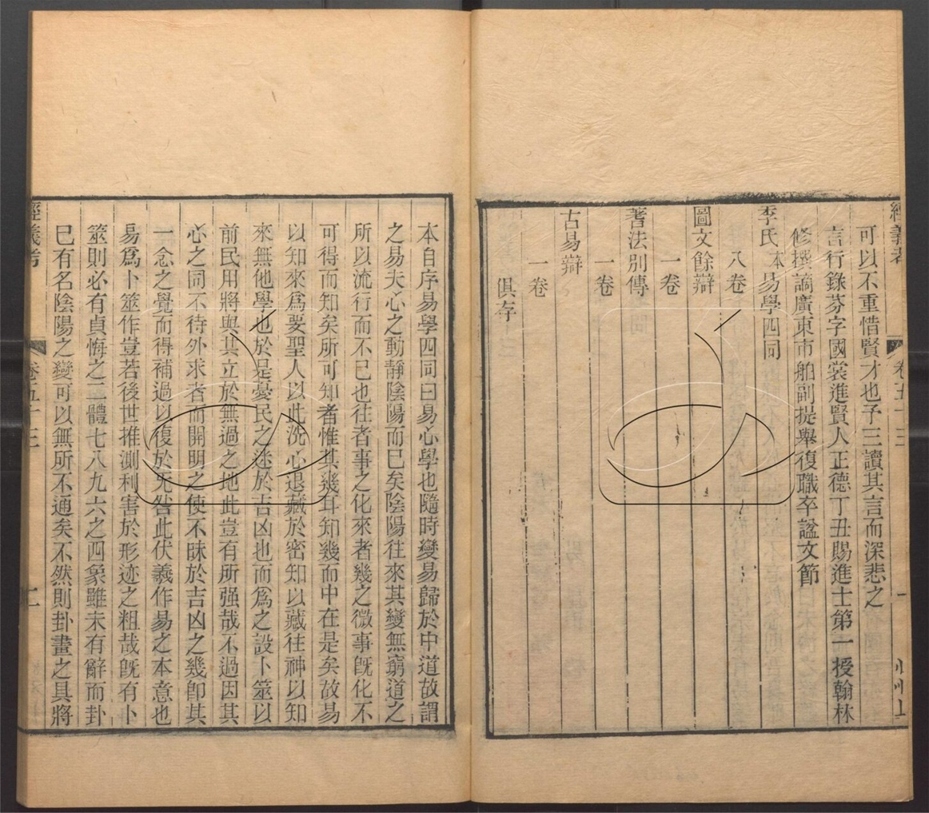 經義考 卷五十三 一
可以不重惜賢才也予三讀其言而深悲之
言行錄芬字國裳進賢人正德丁丑賜進士第一授翰林
修撰謫廣東市舶副提舉復職卒諡文節
季氏本易學四同
八卷
圖文餘辯
一卷
蓍法別傳
一卷
古易辯
一卷
俱存
本自序易學四同曰易心學也隨時變易歸於中道故謂
之易夫心之動靜陰陽而已矣陰陽往來其變無窮道之
所以流行而不已也往者事之化來者幾之微事旣化不
可得而知矣所可知者惟其幾耳知幾而中在是矣故易
以知來爲要聖人以此洗心退藏於密知以藏往神以知
來無他學也於是憂民之迷於吉凶也而爲之設卜筮以
前民用將與其立於無過之地此豈有所强哉不過因其
心之同不待外求者而開明之使不昧於吉凶之幾卽其
一念之覺而得補過以復於无咎此伏羲作易之本意也
易爲卜筮作豈若後世推測利害於形迹之粗哉旣有卜
筮則必有貞悔之二體七八九六之四象雖未有辭而卦
已有名陰陽之變可以無所不通矣不然則卦畫之具將
經義考 卷五十三 二